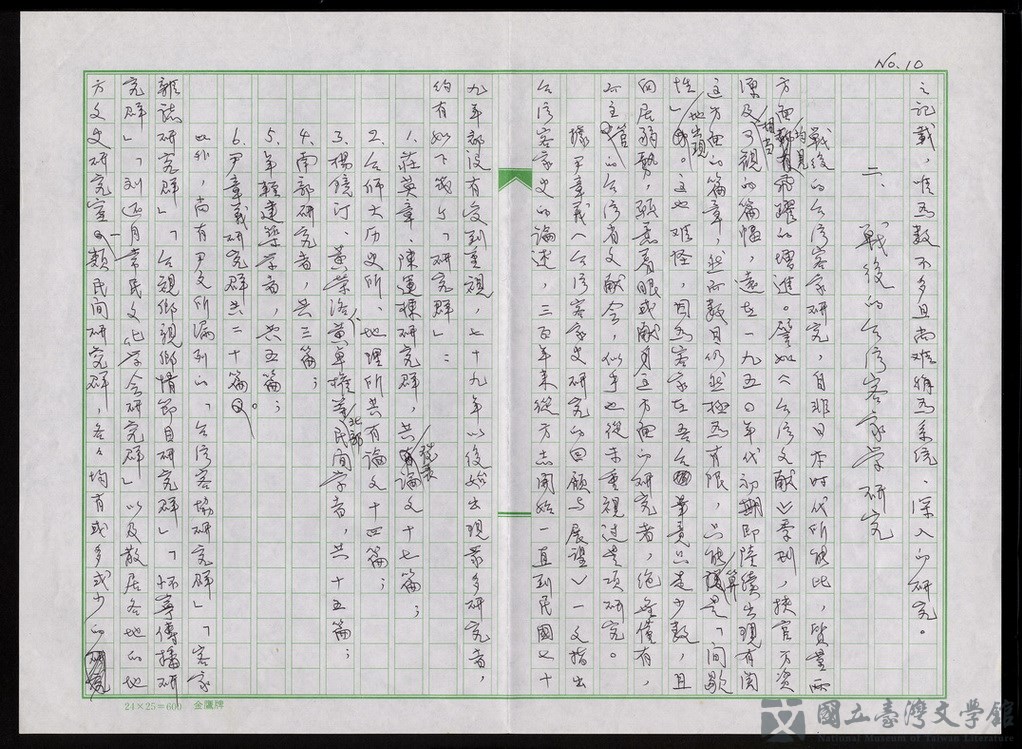 No. 10
之記載，唯為數不多且尚難稱為系統、深入的研究。
二、戰後的台灣客家學研究
戰後的台灣客家研究，自非日本時代所能比，質量兩
方面均見相當飛躍的增進。譬如《台灣文献》季刊，挾官方資
源及可觀的篇幅，遠在一九五０年代初期即陸續出現有関
這方面的篇章，然而數目仍然極為有限，只能算是「間歇
性」地出現。這也難怪，因為客家在吾台畢竟只是少數，且
向居弱勢，願意着眼或献身這方面的研究者，絶無僅有，
而主管的台湾省文献会，似乎也從未重視過是項研究。
據尹章義〈台灣客家史研究的回顧与展望〉一文指出
台湾客家史的論述，三百年来從方志開始一直到民國七十
九年都没有受到重視，七十九年以後始出現衆多研究者，
約有如下幾个「研究群」：
1. 莊英章、陳運棟研究群，共發表論文十七篇；
2. 台師大历史所、地理所共有論文十四篇；
3. 楊鏡汀、黃榮洛、黃卓權等北部民間学者，共十五篇；
4. 南部研究者，共三篇；
5. 年輕建築学者，共五篇；
6. 尹章義研究群共二十篇。
此外，尚有尹文所漏列的「台湾客协研究群」「客家
雜誌研究群」「台視鄉親鄉情節目研究群」「怀寧傳播研
究群」「刘还月常民文化学会研究群」以及散居各地的地
方文史研究室一類民間研究群，各々均有或多或少的
24×25=600 金鷹牌
國立臺灣文學館
National Museum of Taiwan Literature